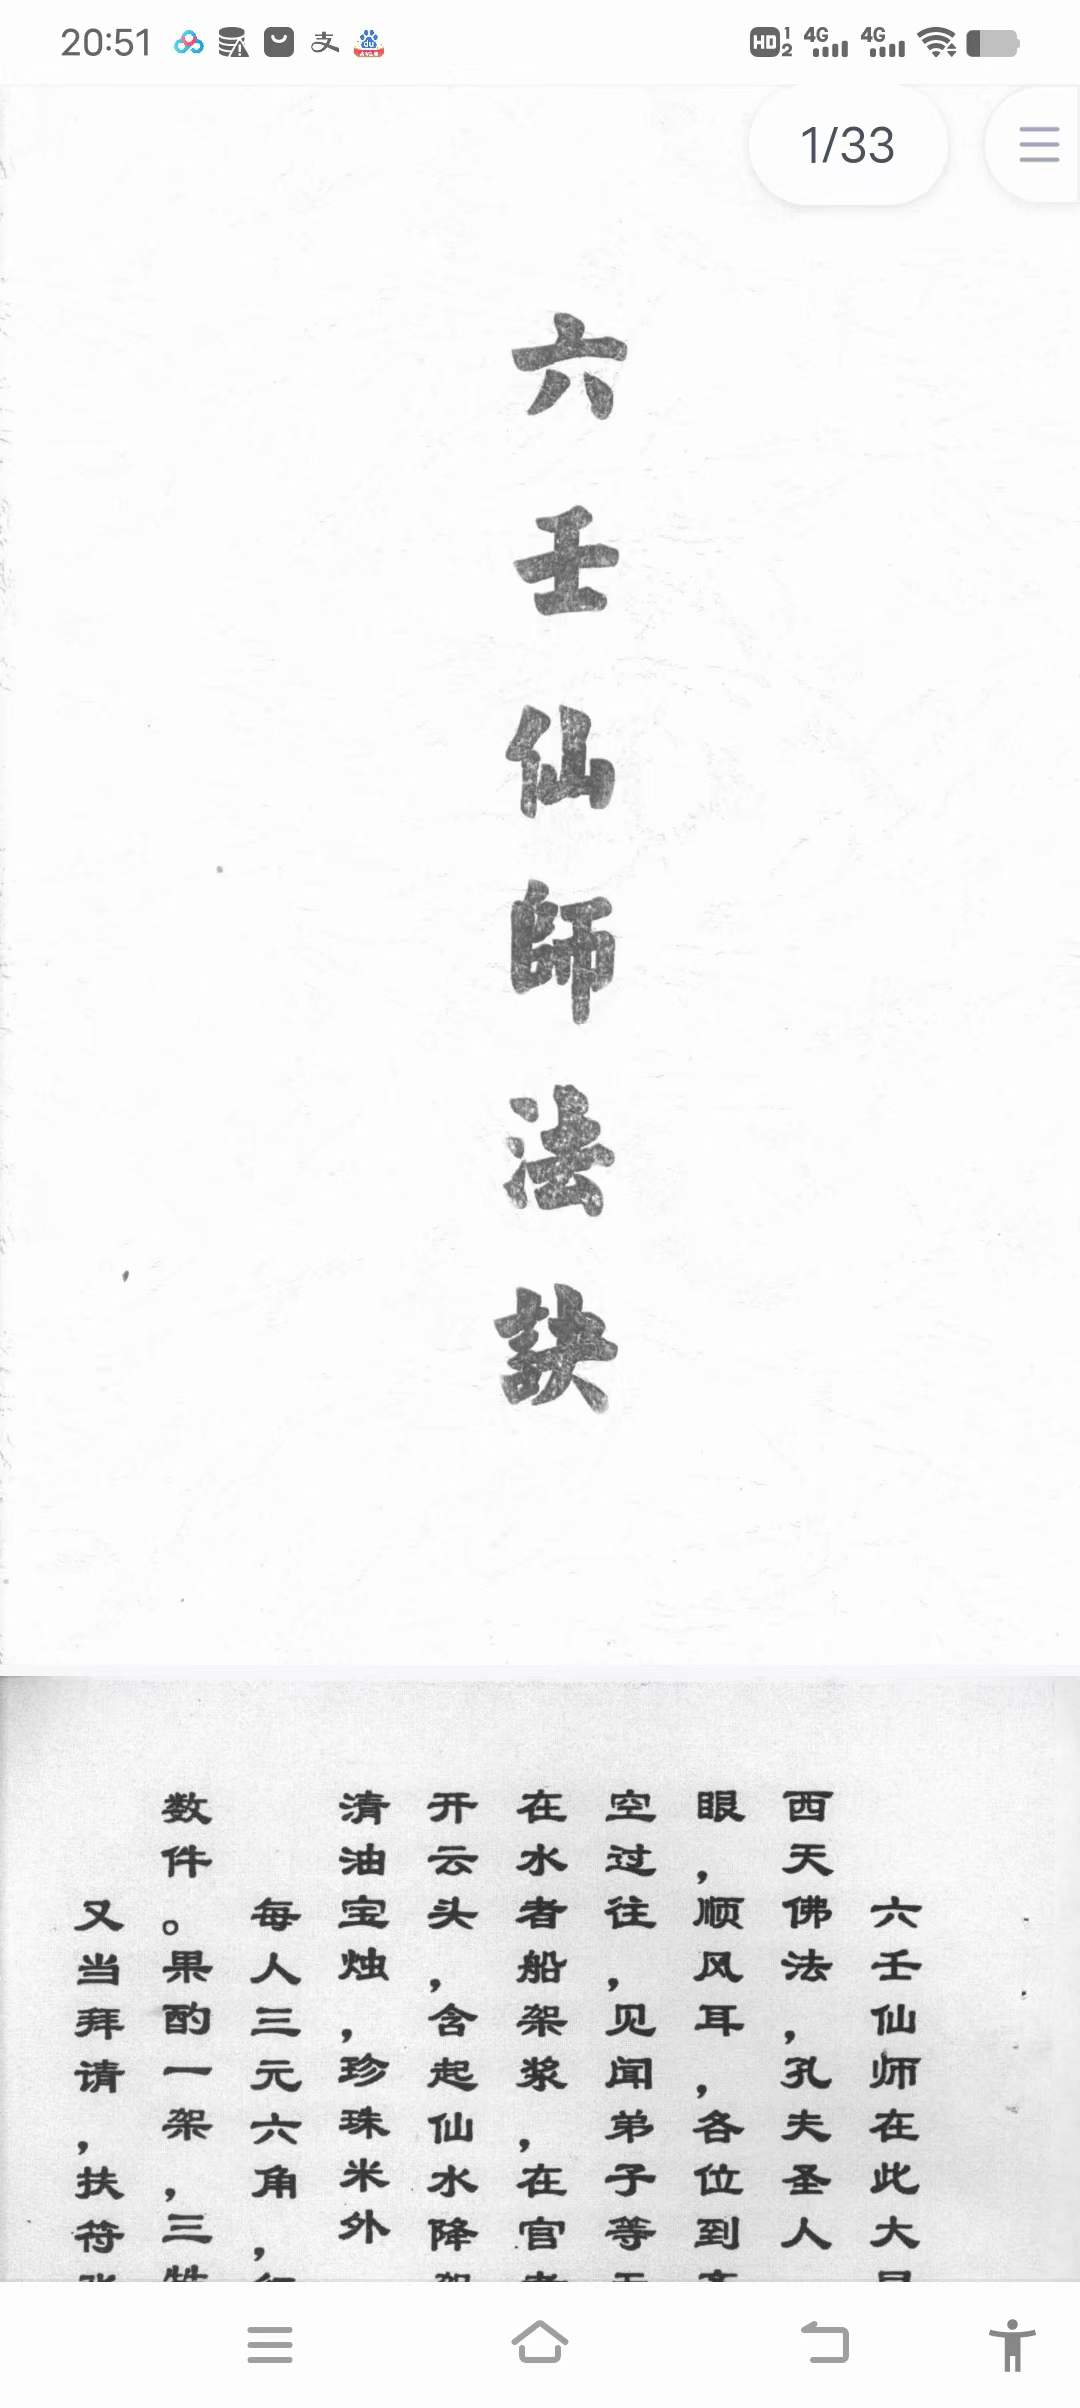 20:51
1/33
六壬仙師法訣
六壬仙师在此大
西天佛法，孔夫圣人
眼，顺风耳，各位到
空过往，见闻弟子等
在水者船架浆，在官
开云头，含起仙水降
清油宝烛，珍珠米外
每人三元六角，
数件。果酌一架，三
又当拜请，扶符